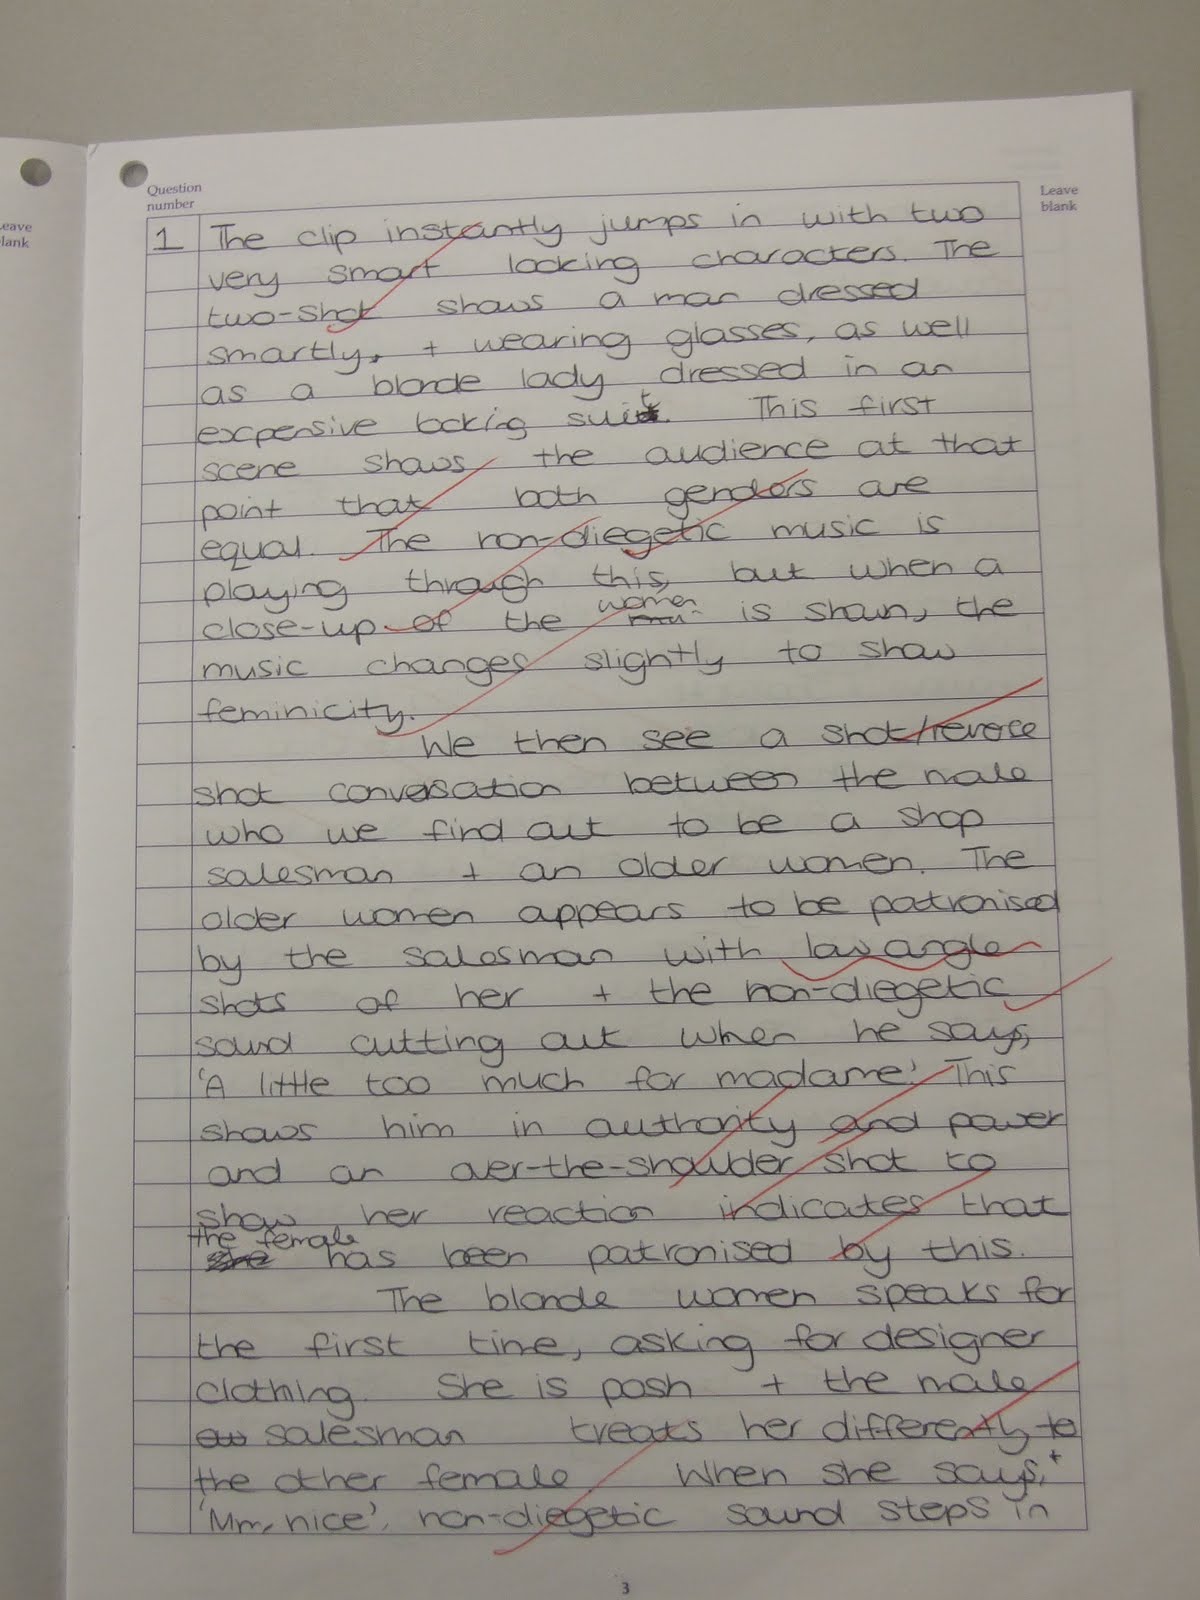 Question
number
Leave
blank
eave
lank
1 The clip instantly jumps in with two
very smart looking characters. The
two-shot shows a man dressed
smartly, + wearing glasses, as well
as a blonde lady dressed in an
excpensive looking suit. This first
scene shows the audience at that
point that both genders are
equal. The non-diegetic music is
playing through this, but when a
close-up of the women is shown, the
music changes slightly to show
feminicity.
We then see a shot/reverce
shot conversation between the male
who we find out to be a shop
salesman + an older women. The
older women appears to be patronised
by the salesman with low angle
shots of her + the non-diegetic
sound cutting out when he says,
'A little too much for madame'. This
shows him in authority and power
and an over-the-shoulder shot to
show her reaction indicates that
the female has been patronised by this.
The blonde women speaks for
the first time, asking for designer
clothing. She is posh + the male
salesman treats her differently to
the other female. When she says, +
'Mm, nice', non-diegetic sound steps in
3